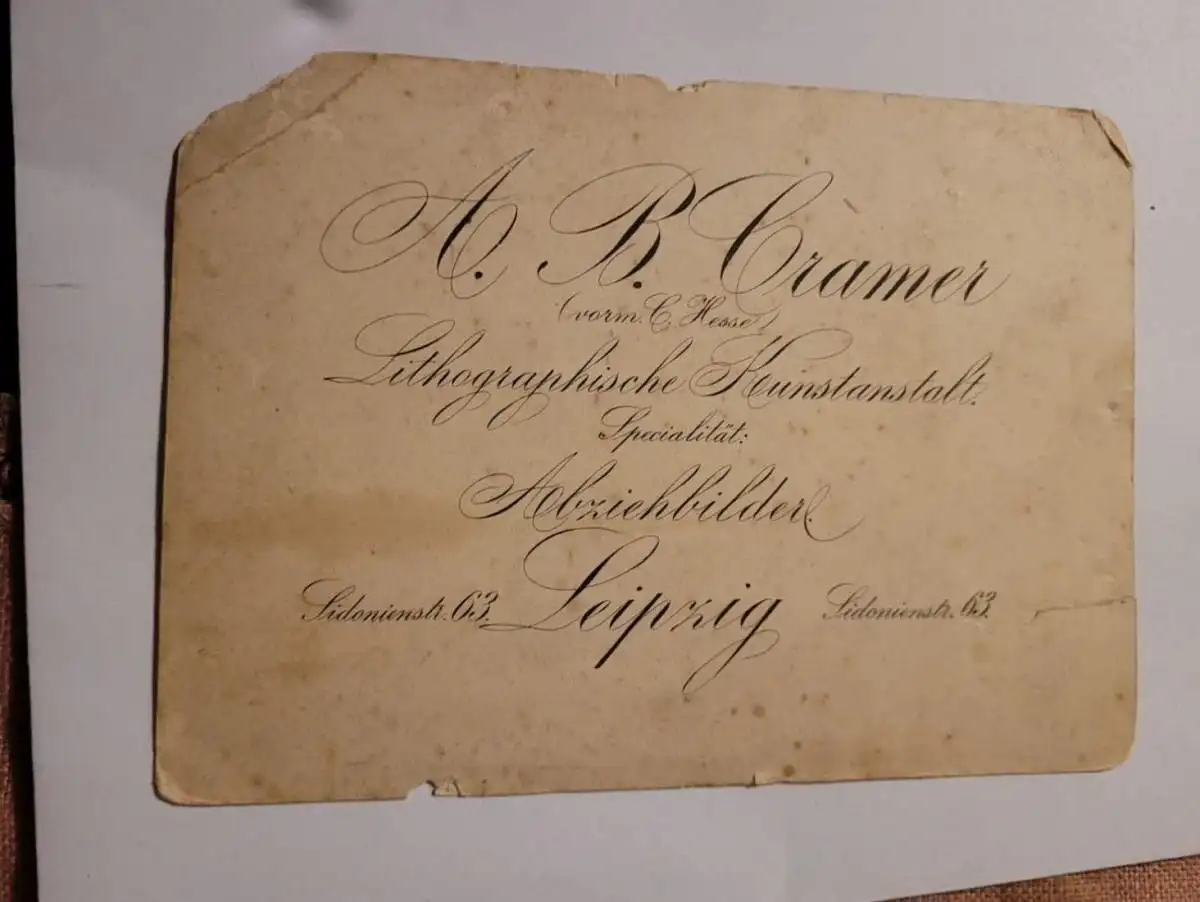 A. B. Cramer
(vorm. C. Hesse)
Lithographische Kunstanstalt.
Specialität:
Abziehbilder.
Sidonienstr. 63. Leipzig Sidonienstr. 63.